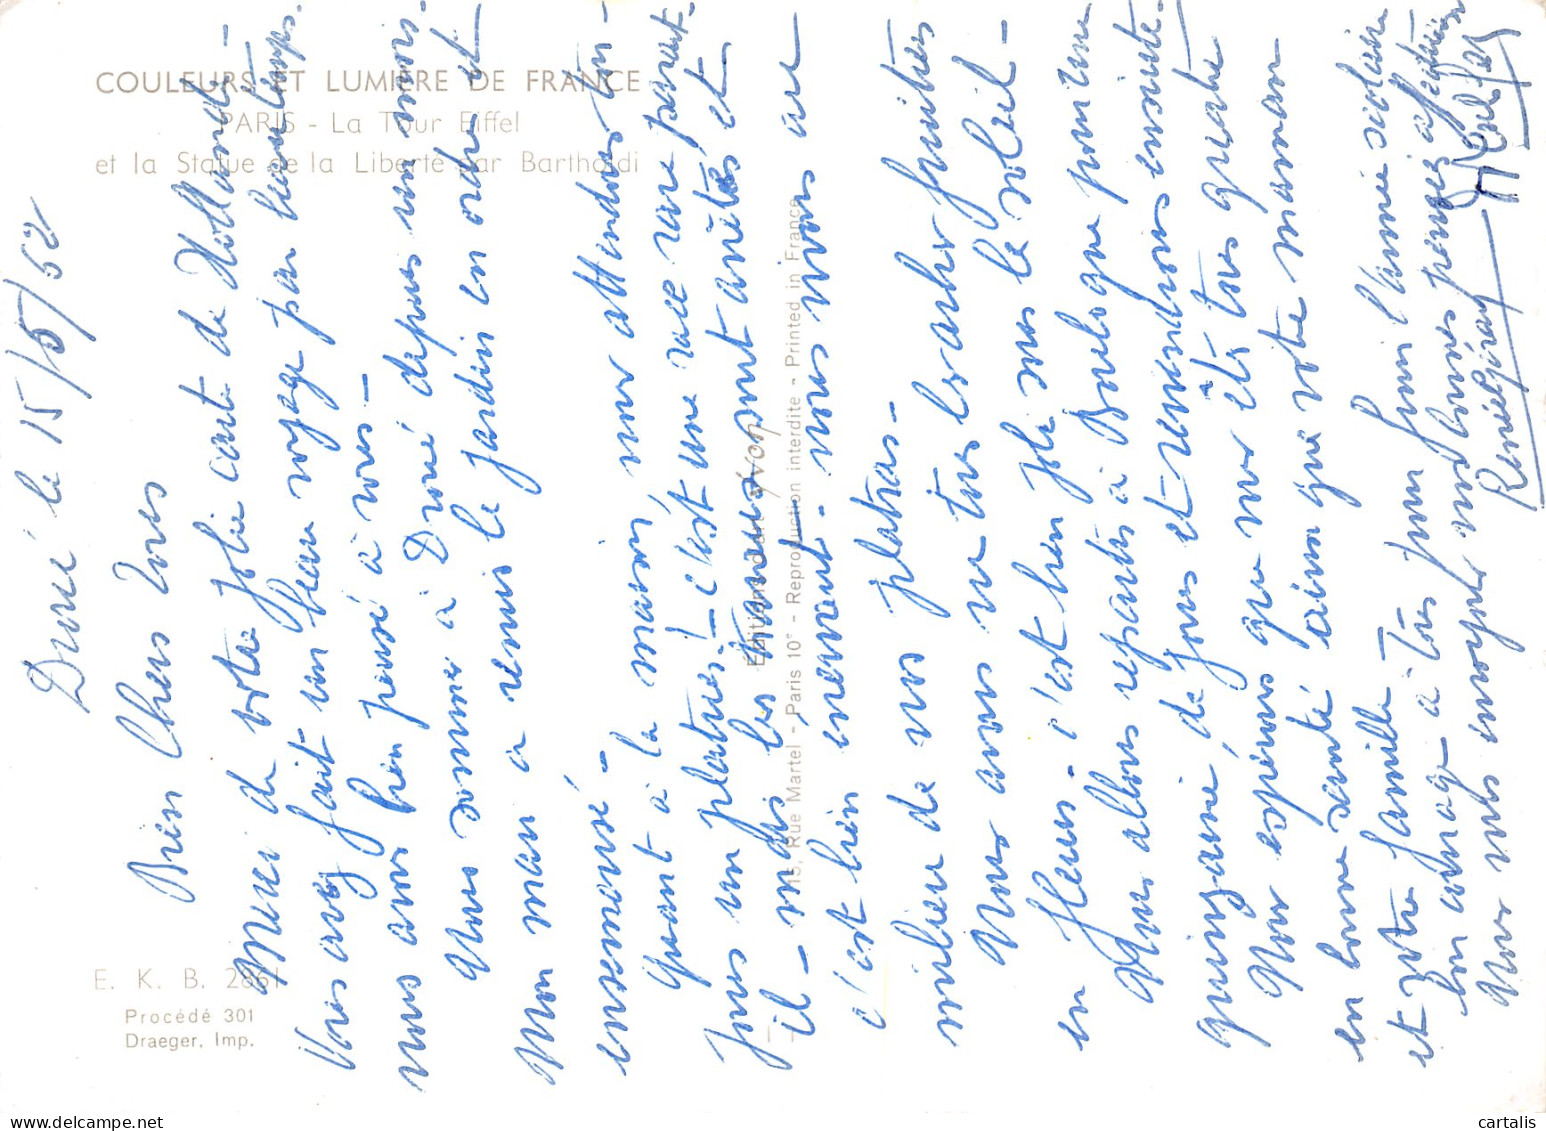 COULEURS ET LUMIÈRE DE FRANCE
PARIS - La Tour Eiffel
et la Statue de la Liberté par Bartholdi
E. K. B. 2861
Procédé 301
Draeger, Imp.
Editions d'art Yvon
15, Rue Martel - Paris 10e - Reproduction interdite - Printed in France
le 15/5/62
Bien Chers Tous
Merci de votre jolie carte de Hollande -
Vous avez fait un beau voyage par beau temps.
nous avons bien pensé à vous -
Nous sommes à depuis un mois -
Mon mari a remis le jardin en ordre et
ensemencé -
Quant à la maison nous attendons tou-
jours un plâtrier ! c'est une race rare parait-
il - mais les travaux sont arrêtés et
c'est bien ennuyant - nous nous au
milieu de nos platras -
Nous avons vu tous les arbres fruitiers
en fleurs - c'est bien joli sous le soleil -
Nous allons repartis à Boulogne pour une
quinzaine de jours et reviendrons ensuite -
Nous espérons que vous êtes tous quatre
en bonne santé ainsi que votre maman
et votre famille
bon courage à tous pour finir l'année scolaire
Nous vous envoyons nos bonnes pensées affectueuses
cartalis